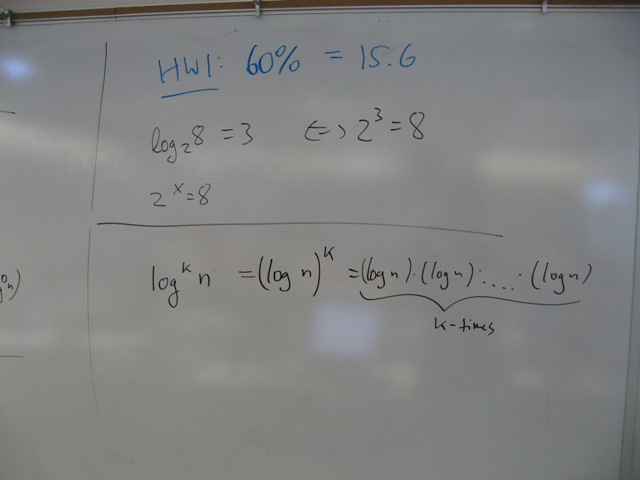 HW1: 60% = 15.6
log₂8 = 3 ⇔ 2³ = 8
2ˣ = 8
logᵏ n = (log n)ᵏ = (log n) · (log n) · .... · (log n)
k-times